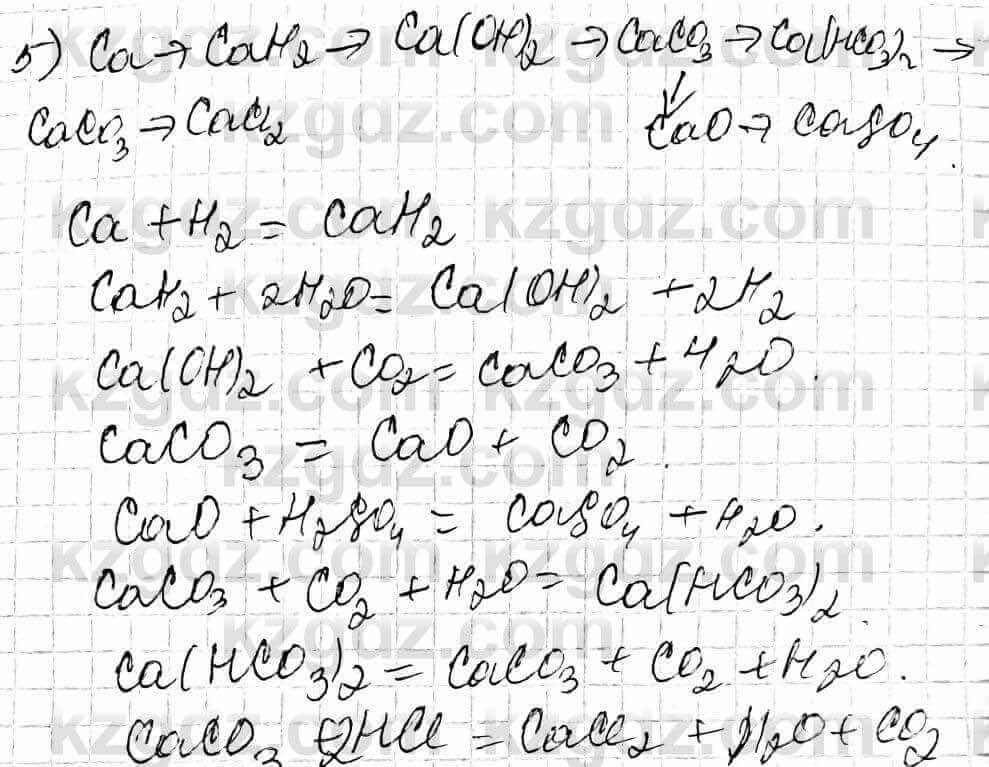 5) Ca → CaH₂ → Ca(OH)₂ → CaCO₃ → Ca(HCO₃)₂ →
CaCO₃ → CaCl₂
↓
CaO → CaSO₄.
Ca + H₂ = CaH₂
CaH₂ + 2H₂O = Ca(OH)₂ + 2H₂
Ca(OH)₂ + CO₂ = CaCO₃ + H₂O.
CaCO₃ = CaO + CO₂.
CaO + H₂SO₄ = CaSO₄ + H₂O.
CaCO₃ + CO₂ + H₂O = Ca(HCO₃)₂.
Ca(HCO₃)₂ = CaCO₃ + CO₂ + H₂O.
CaCO₃ + 2HCl = CaCl₂ + H₂O + CO₂
kzgdz.com